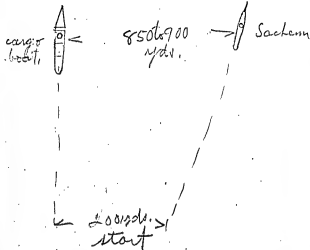 cargo
boat.
850 to 900
yds.
Sachem
200 yds.
start